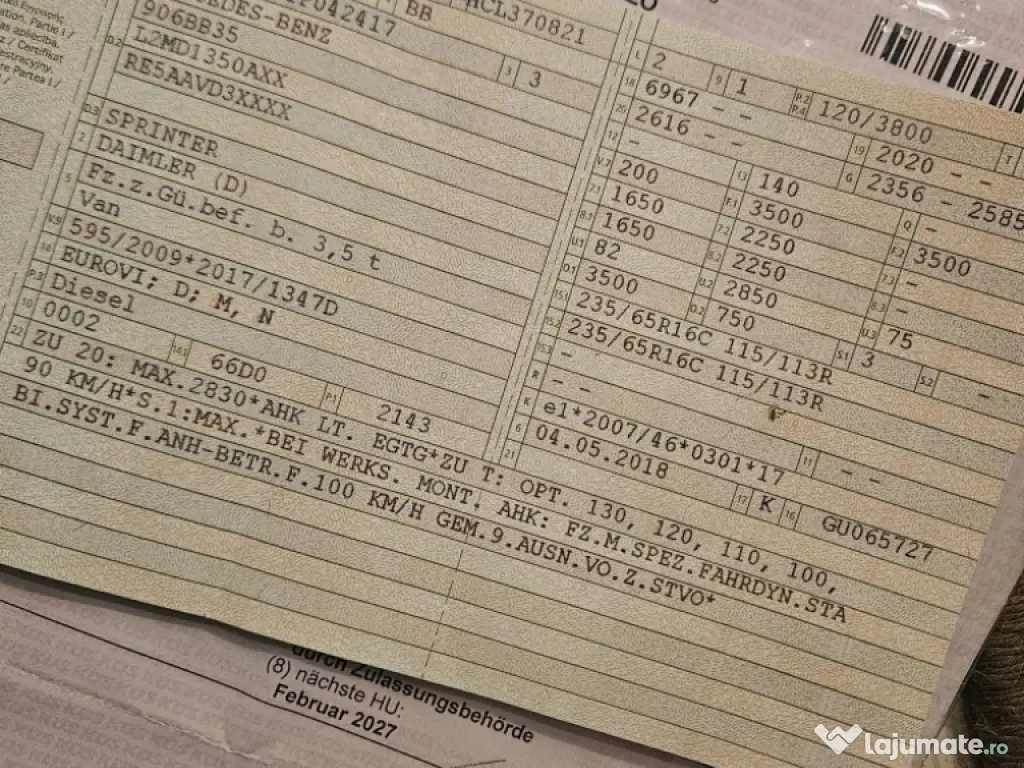 HCL370821
BB
906BB35
L2MD1350AXX
D.2
RE5AAVD3XXXX
3 3
D.3 SPRINTER
2 DAIMLER (D)
5 Fz.z.Gü.bef. b. 3,5 t
Van
V.9 595/2009*2017/1347D
14 EUROVI; D; M, N
P.3 Diesel
10 0002 14.1 66D0 P.1 2143
L 2 9 1 P.2 P.4 120/3800 T
18 6967 - -
20 2616 - - 19 2020 - -
12 - 13 140 G 2356 - 2585
V.7 200 F.1 3500 Q -
7.1 1650 7.2 2250 F.2 3500
8.1 1650 8.2 2250 7.3 -
U.1 82 U.2 2850 8.3 -
O.1 3500 O.2 750 U.3 75
15.1 235/65R16C 115/113R S.1 3 S.2 -
15.2 235/65R16C 115/113R
15.3 -
R - - 11 - -
K e1*2007/46*0301*17
6 04.05.2018 17 K 16 GU065727
21
22 ZU 20: MAX.2830*AHK LT. EGTG*ZU T: OPT. 130, 120, 110, 100,
90 KM/H*S.1:MAX.*BEI WERKS. MONT. AHK: FZ.M.SPEZ.FAHRDYN.STA
BI.SYST.F.ANH-BETR.F.100 KM/H GEM.9.AUSN.VO.Z.STVO*
durch Zulassungsbehörde
(8) nächste HU:
Februar 2027
lajumate.ro